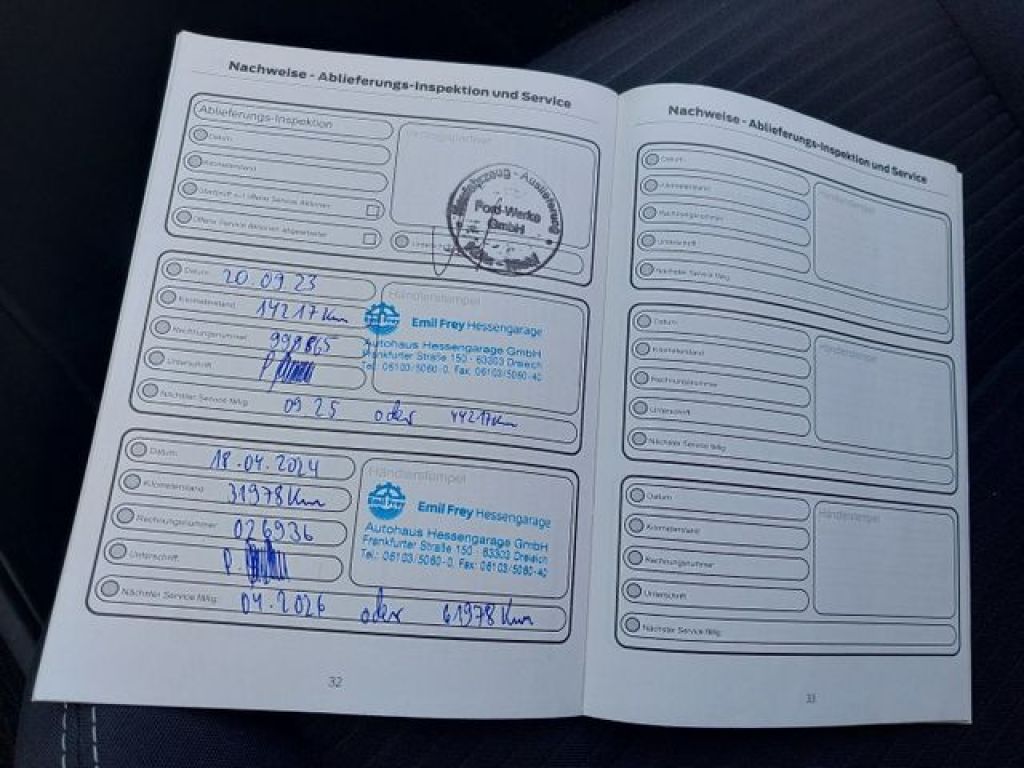 Nachweise - Ablieferungs-Inspektion und Service
Ablieferungs-Inspektion
Datum
Kilometerstand
Überprüft auf offene Service Aktionen
Offene Service Aktionen abgearbeitet
Ford-Werke
GmbH
Datum: 20.09.23
Kilometerstand 14217 Km
Rechnungsnummer 998865
Unterschrift P.
Nächster Service fällig: 09 25 oder 44217 Km
Händlerstempel
Emil Frey Emil Frey Hessengarage
Autohaus Hessengarage GmbH
Frankfurter Straße 150 - 63303 Dreieich
Tel.: 06103/5060-0, Fax: 06103/5060-40
Datum: 18.04.2024
Kilometerstand 31978 Km
Rechnungsnummer: 026936
Unterschrift: P.
Nächster Service fällig: 04.2026 oder 61978 Km
Händlerstempel
Emil Frey Emil Frey Hessengarage
Autohaus Hessengarage GmbH
Frankfurter Straße 150 - 63303 Dreieich
Tel.: 06103/5060-0, Fax: 06103/5060-40
32
Nachweise - Ablieferungs-Inspektion und Service
Datum
Kilometerstand
Rechnungsnummer
Unterschrift
Nächster Service fällig
Händlerstempel
Datum
Kilometerstand
Rechnungsnummer
Unterschrift
Nächster Service fällig
Händlerstempel
Datum
Kilometerstand
Rechnungsnummer
Unterschrift
Nächster Service fällig
Händlerstempel
33